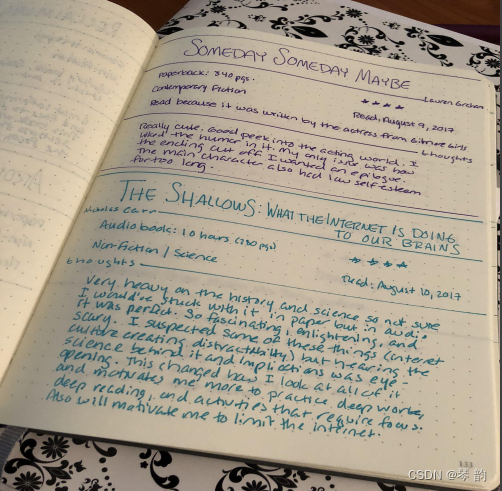 SOMEDAY SOMEDAY MAYBE
Lauren Graham
Paperback: 340 pgs.
★★★★
Contemporary Fiction
Read: August 9, 2017
Read because it was written by the actress from Gilmore Girls
thoughts
Really cute. Good peek into the acting world. I
liked the humor in it. My only issue was how
the ending cut off I wanted an epilogue.
The main character also had low self-esteem
for too long.
THE SHALLOWS: WHAT THE INTERNET IS DOING
TO OUR BRAINS
Nicholas Carr
Audiobook: 10 hours (280 pgs)
★★★★
Non-Fiction / Science
Read: August 10, 2017
thoughts
Very heavy on the history and science so not sure
I would've stuck with it in paper but in audio
it was perfect. So fascinating, enlightening, and
scary. I suspected some of these things (interet
culture creating distractability) but hearing the
science behind it and implications was eye-
opening. This changed how I look at all of it
and motivates me more to practice deep work,
deep reading, and activities that require focus.
Also will motivate me to limit the internet.
133
CSDN @琴 韵